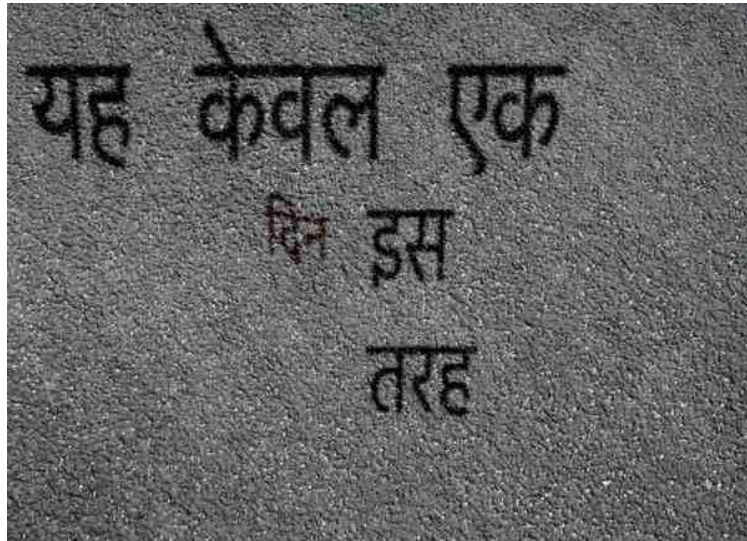 यह केवल एक
दिन इस
तरह